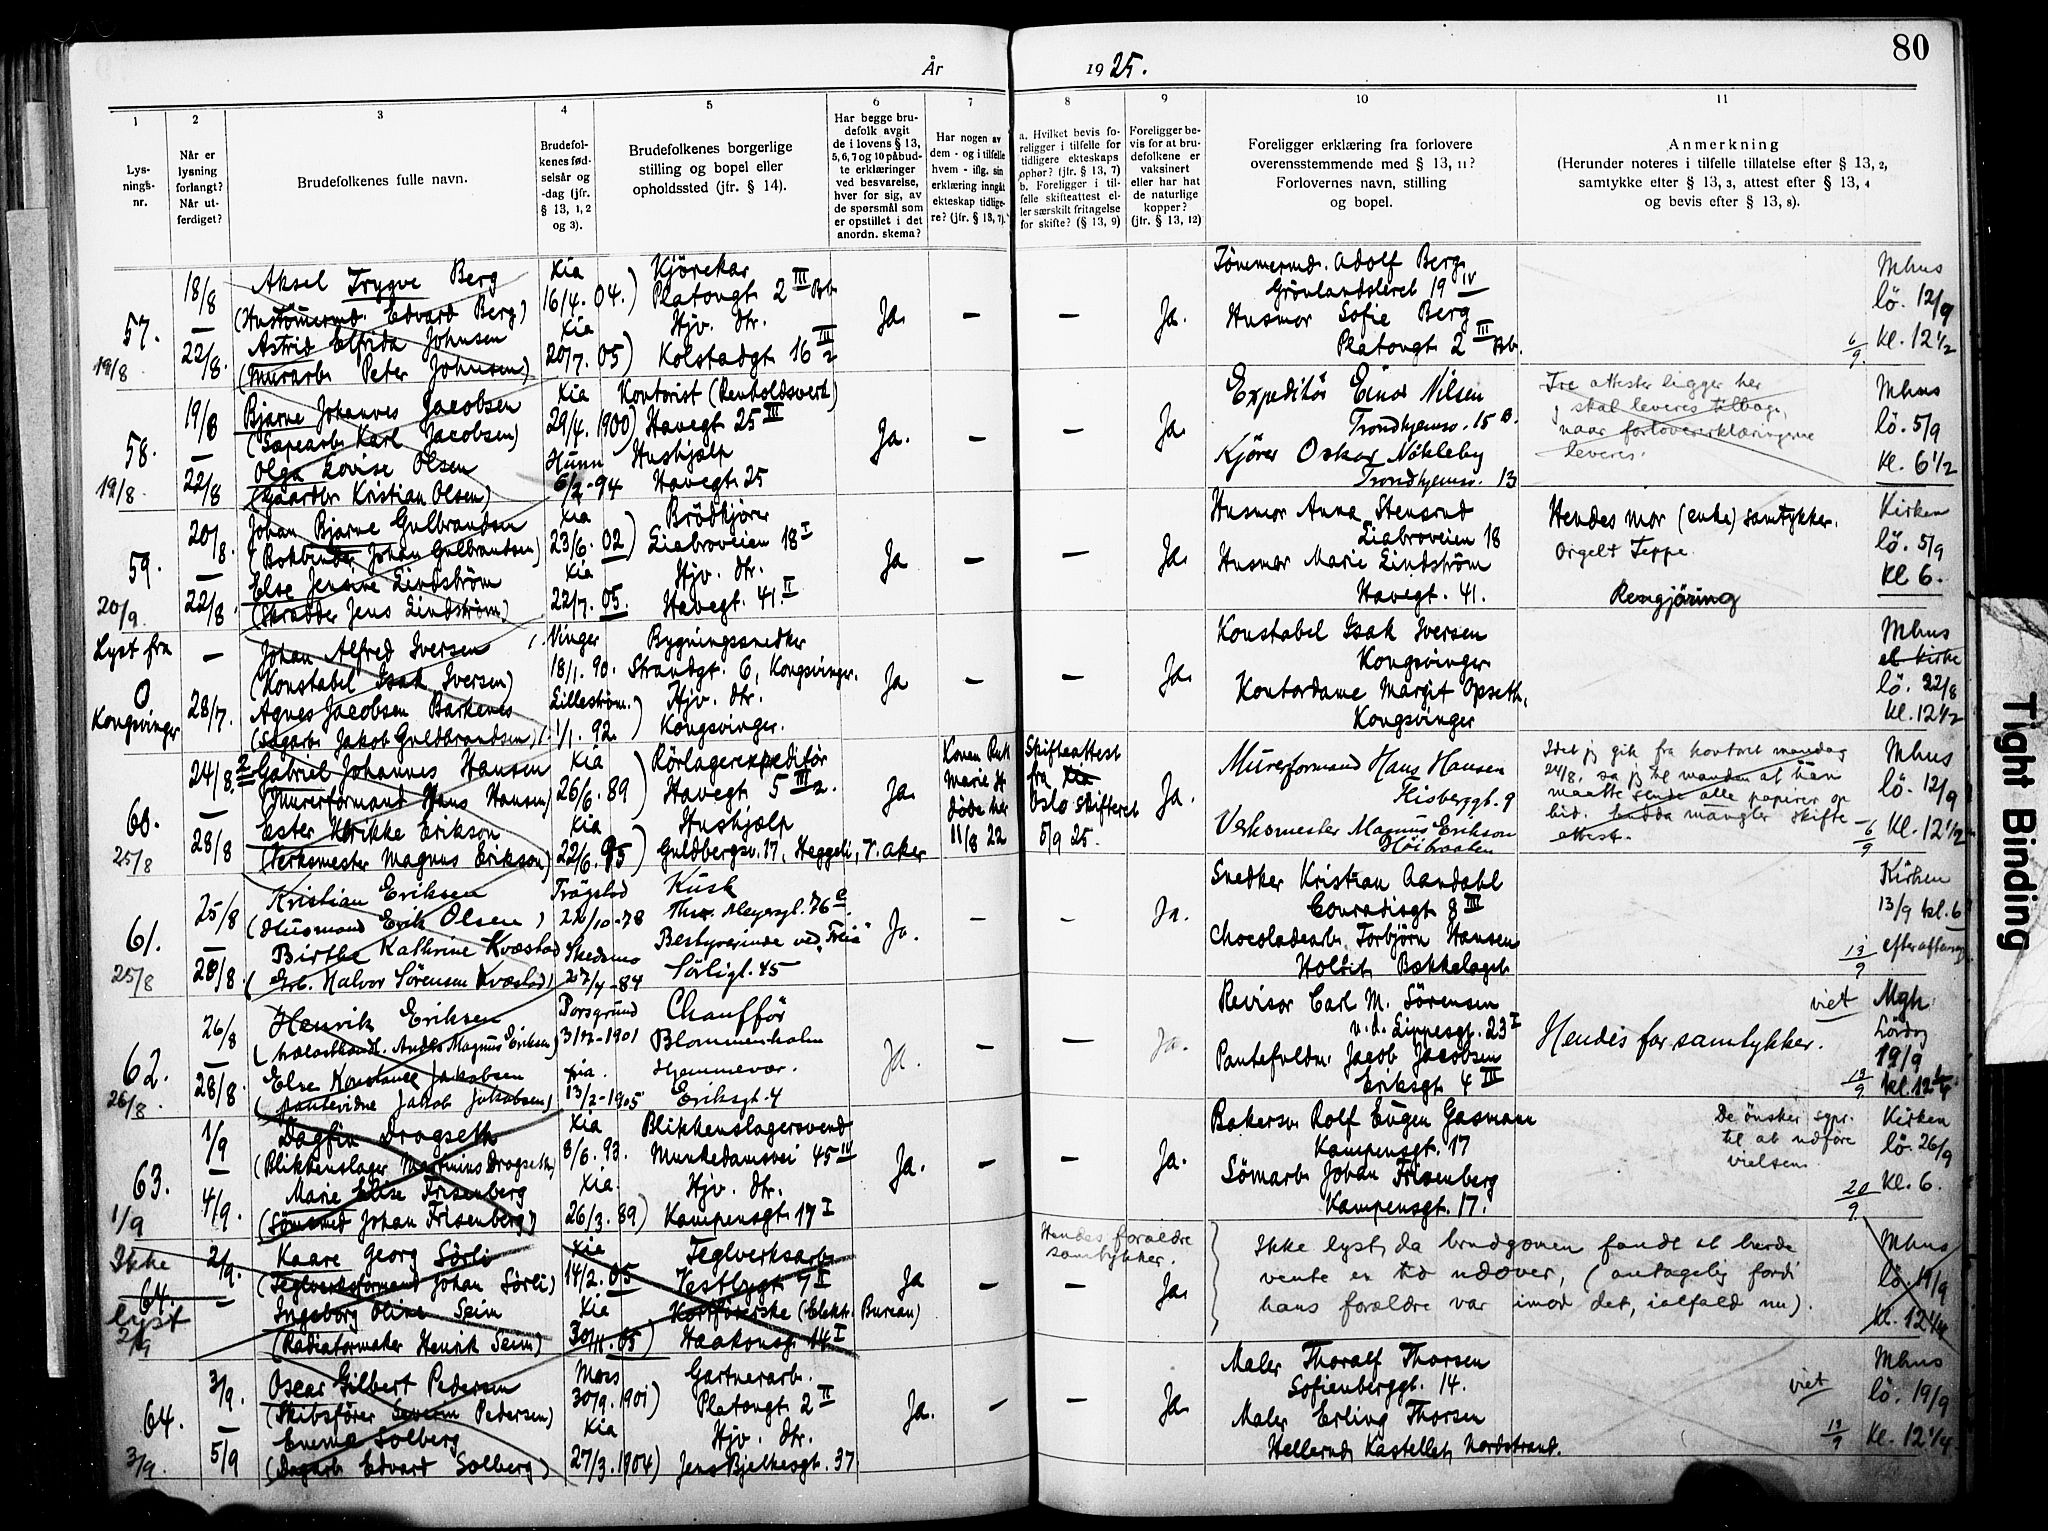 År 1925.
80
1
2
3
4
5
6
7
8
9
10
11
Lys-
nings-
nr.
Når er
lysning
forlangt?
Når ut-
ferdiget?
Brudefolkenes fulle navn.
Brudefol-
kenes fød-
selsår og
-dag (jfr.
§ 13, 1, 2
og 3).
Brudefolkenes borgerlige
stilling og bopel eller
opholdssted (jfr. § 14).
Har begge bru-
defolk avgit
de i lovens § 13,
5, 6, 7 og 10 påbud-
te erklæringer
ved besvarelse,
hver for sig, av
de spørsmål som
er opstillet i det
anordn. skema?
Har nogen av
dem - og i tilfelle
hvem - iflg. sin
erklæring inngått
ekteskap tidlige-
re? (jfr. § 13, 7).
a. Hvilket bevis fo-
religger i tilfelle for
tidligere ekteskaps
ophør? (jfr. § 13, 7)
b. Foreligger i til-
felle skifteattest el-
ler særskilt fritagelse
for skifte? (§ 13, 9)
Foreligger be-
vis for at bru-
defolkene er
vaksinert
eller har hat
de naturlige
kopper?
(jfr. § 13, 12)
Foreligger erklæring fra forlovere
overensstemmende med § 13, 11?
Forlovernes navn, stilling
og bopel.
Anmerkning
(Herunder noteres i tilfelle tillatelse efter § 13, 2,
samtykke efter § 13, 3, attest efter § 13, 4
og bevis efter § 13, 8).
57.
19/8
18/8
—
22/8.
Aksel Trygve Berg
Edvard Berg)
Astrid Elfrida Johnsen
(Murarb. Peter Johnsen)
Kia
16/4. 04.)
Kia
20/7. 05)
Kjørekar
Platougt. 2 III
Hjv. dtr.
Kolstadgt. 16 III 2
Ja.
—
—
Ja.
Tömmermd. Adolf Berg
Grönlandsleret 19 IV
Husmor Sofie Berg
Platougt. 2 III
6/9.
Mhus
lö. 12/9
kl. 12 1/2
58.
19/8.
19/8
—
22/8
Bjarne Johannes Jacobsen
(Sæpearb. Karl Jacobsen)
Olga Lovise Olsen
(Gaardbr. Kristian Olsen)
Kia
29/4. 1900)
Hunn
6/2 - 94
Kontorist (Renholdsverk)
Havegt. 25 III
Hushjælp
Havegt. 25
Ja.
—
—
Ja.
Expeditör Einar Nilsen
Trondhjemsv. 15 B.
Kjörer Oskar Nökleby
Trondhjemsv. 13
Tre attester ligger her
skal leveres tilbage,
naar forlovererklæringerne
leveres.
Mhus
lö. 5/9
kl. 6 1/2
59.
20/9.
20/8.
—
22/8.
Johan Bjarne Gulbrandsen
(Bokbinder Johan Gulbrandsen)
Else Jensine Lindström
(Skrädder Jens Lindström)
Kia
23/6. 02)
Kia
22/7. 05.
Brödkjörer
Liabroveien 18 I
Hjv. dtr.
Havegt. 41. II
Ja
—
—
Ja.
Husmor Anna Stensrud
Liabroveien 18
Husmor Marie Lindström
Havegt. 41.
Hendes mor (enke) samtykker.
Orgel + Teppe.
Rengjöring
Kirken
lö. 5/9
Kl 6.
Lyst fra
O
Kongsvinger
—
28/7.
Johan Alfred Iversen
(Konstabel Isak Iversen)
Agnes Jacobsen Barkenes
(Sagarb. Jakob Guldbrandsen)
Vinger
18/1. 90.
Lilleström.)
1/1. 92.
Bygningssnedker
Strandgt. 6, Kongsvinger.
Hjv. dtr.
Kongsvinger.
Ja
—
—
Ja.
Konstabel Isak Iversen
Kongsvinger
Kontordame Margit Opseth,
Kongsvinger
Mhus
el. kirke
lö. 22/8
kl. 12 1/2
60.
25/8
24/8.
—
28/8
2 Gabriel Johannes Hansen
(Murerformand Hans Hansen)
Ester Ulrikke Erikson
(Verksmester Magnus Erikson)
Kia
26/6. 89)
Kia
22/6. 95)
Rörlagerexpeditör
Havegt. 5 III 2.
Hushjælp
Guldbergsv. 17, Heggeli, V. Aker
Ja.
Konen
Marie H
döde her
11/8 22
Skifteattest
fra Kia
Oslo skifteret
5/9 25.
Ja.
Murerformand Hans Hansen
Fisberggt. 9
Verksmester Magnus Erikson
Höibraaten
Idet jeg gik fra kontoret mandag
24/8, sa jeg til manden at han
maatte sende alle papirer op
hid. Endda mangler skifte-
attest.
6/9
Mhus
lö. 12/9
Kl. 12 1/2
61.
25/8
25/8
—
28/8
Kristian Eriksen
(Husmand Erik Olsen)
Birthe Kathrine Kvæstad
(Grb. Halvor Sörensen Kvæstad)
Trögstad
22/10-78
Skedsmo
27/4-84
Kusk
Thv. Meyersgt. 76 c.
Bestyrerinde ved „Freia"
Sörligt. 45
Ja.
—
—
Ja.
Snedker Kristian Aandahl
Conradisgt 8 III
Chocoladearb. Torbjörn Hansen
Holtet Bækkelaget
13/9
Kirken
13/9 kl. 6
efter aftensg.
62.
26/8.
26/8
—
28/8
Henrik Eriksen
Anders Magnus Eriksen)
Else Konstance Jakobsen
(Pantevidne Jakob Jakobsen)
Porsgrund
3/12-1901
Kia.
13/2-1905
Chaufför
Blommenholm
Hjemmevær.
Eriksgt. 4
Ja.
—
—
Ja.
Revisor Carl M. Sörensen
v. d. Lippesgt. 23 I
Pantefuldm. Jacob Jacobsen
Eriksgt. 4 III
viet
Hendes far samtykker.
13/9
Mgh.
Lördag
19/9
kl. 12 1/4
63.
1/9
1/9
—
4/9.
Dagfin Dragseth
(Blikkenslager Martinius Dragseth)
Marie Elise Frisenberg
(Sömsmed Johan Frisenberg)
Kia
3/6. 93.
Kia.
26/3. 89)
Blikkenslagersvend
Munkedamsvei 45 IV
Hjv. dtr.
Kampensgt. 17 I
Ja.
—
—
Ja.
Bakersv. Rolf Eugen Gasmann
Kampensgt. 17
Sömarb. Johan Frisenberg
Kampensgt. 17.
De ønsker spr.
til at udføre
vielsen.
20/9
Kirken
lö. 26/9
Kl. 6.
Ikke
64.
lyst
2/9
2/9.
—
Kaare Georg Sörli
(Teglverksformand Johan Sörli)
Ingeborg Oline Seim
(Radiatormaker Henrik Seim)
Kia
14/2. 05
Kia
05)
Teglverksarb.
Vestbygt. 7 II
Kortförerske (Elekt. Bureau)
Haakonsgt. 14 I
Ja
—
Hendes forældre
samtykker.
—
Ja.
Ikke lyst, da brudgomen fandt at burde
vente en tid udover, (antagelig fordi
hans forældre var imod det, ialfald nu).
Mhus
lö. 19/9
kl. 12 1/4
64.
3/9.
3/9.
—
5/9
Oscar Gilbert Pedersen
(Skibsförer Severin Pedersen)
Emma Solberg
(Dagarb. Edvard Solberg)
Moss
30/9. 1901)
Kia
27/3. 1904)
Gartnerarb.
Platougt. 2 II
Hjv. dtr.
Jens Bjelkesgt. 37
Ja.
—
—
Ja.
Maler Thoralf Thorsen
Sofienberggt. 14.
Maler Erling Thorsen
Kastellet, Nordstrand.
viet
13/9
Mhus
lö. 19/9
Kl. 12 1/4.
Tight Binding